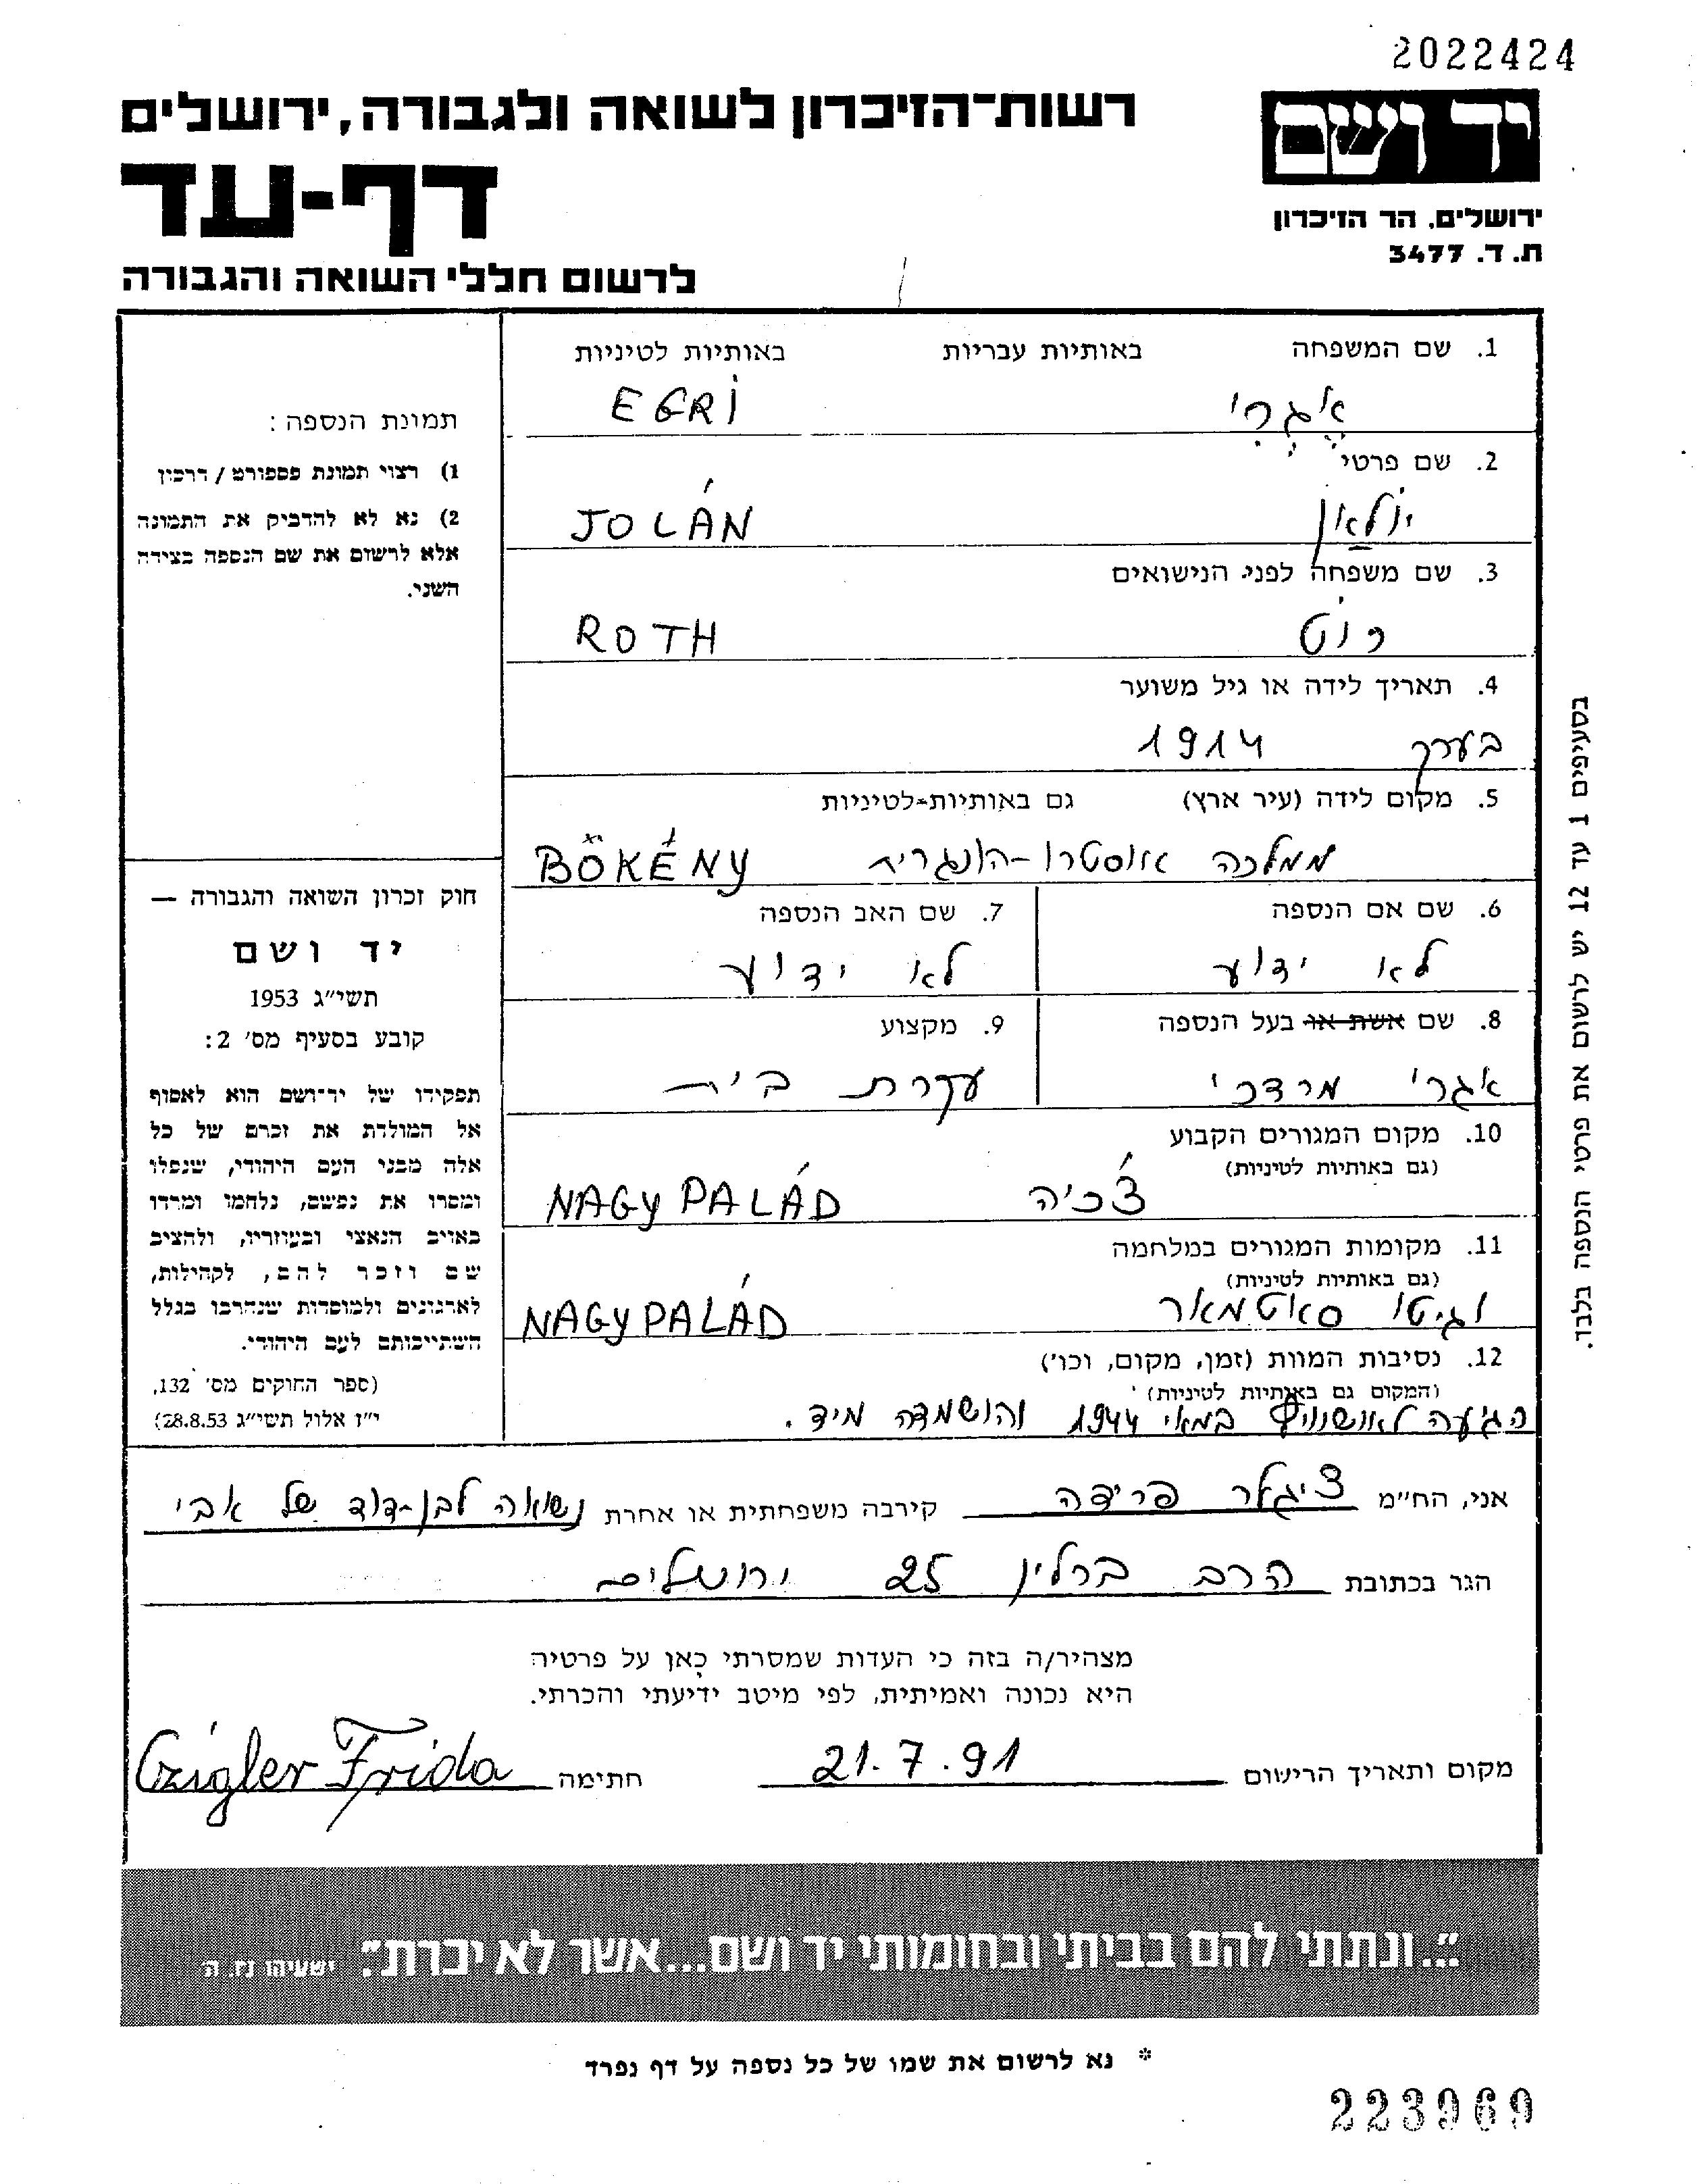 2022424
רשות־הזיכרון לשואה ולגבורה, ירושלים
יד ושם
דף-עד
ירושלים, הר הזיכרון
ת. ד. 3477
לרשום חללי השואה והגבורה
1. שם המשפחה באותיות עבריות באותיות לטיניות
אגרי EGRI
2. שם פרטי
יולאן JOLÁN
3. שם משפחה לפני הנישואים
רוט ROTH
4. תאריך לידה או גיל משוער
בערך 1914
5. מקום לידה (עיר ארץ) גם באותיות-לטיניות
ממלכה אוסטרו-הונגרית BÖKÉNY
6. שם אם הנספה 7. שם האב הנספה
לא ידוע לא ידוע
8. שם אשת או בעל הנספה 9. מקצוע
אגרי מרדכי עקרת בית
10. מקום המגורים הקבוע
(גם באותיות לטיניות)
צ'כיה NAGY PALÁD
11. מקומות המגורים במלחמה
(גם באותיות לטיניות)
וגיטו סאטמאר NAGYPALÁD
12. נסיבות המוות (זמן, מקום, וכו')
(המקום גם באותיות לטיניות)
הגיעה לאושוויץ במאי 1944 והושמדה מיד.
תמונת הנספה:
1) רצוי תמונת פספורט / דרכון
2) נא לא להדביק את התמונה
אלא לרשום את שם הנספה בצידה
השני.
חוק זכרון השואה והגבורה —
יד ושם
תשי״ג 1953
קובע בסעיף מס׳ 2:
תפקידו של יד־ושם הוא לאסוף
אל המולדת את זכרם של כל
אלה מבני העם היהודי, שנפלו
ומסרו את נפשם, נלחמו ומרדו
באויב הנאצי ובעוזריו, ולהציב
שם וזכר להם, לקהילות,
לארגונים ולמוסדות שנחרבו בגלל
השתייכותם לעם היהודי.
(ספר החוקים מס׳ 132,
י״ז אלול תשי״ג 28.8.53)
בסעיפים 1 עד 12 יש לרשום את פרטי הנספה בלבד.
אני, הח״מ ציגלר פרידה קירבה משפחתית או אחרת נשואה לבן-דוד של אבי
הגר בכתובת הרב ברלין 25 ירושלים
מצהיר/ה בזה כי העדות שמסרתי כאן על פרטיה
היא נכונה ואמיתית, לפי מיטב ידיעתי והכרתי.
מקום ותאריך הרישום 21.7.91 חתימה Czigler Frida
״...ונתתי להם בביתי ובחומותי יד ושם...אשר לא יכרת״. ישעיהו נו. ה
* נא לרשום את שמו של כל נספה על דף נפרד
223969